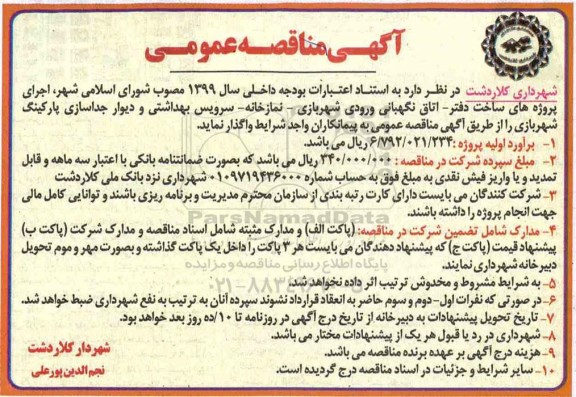 آگهـی مناقصـه عمومـی
شهرداری کلاردشت در نظـر دارد به استنـاد اعتبـارات بودجه داخلـی سال ۱۳۹۹ مصوب شورای اسلامی شهر، اجرای
پروژه های ساخت دفتر- اتاق نگهبانی ورودی شهربازی - نمازخانه- سرویس بهداشتی و دیوار جداسازی پارکینگ
شهربازی را از طریق آگهی مناقصه عمومی به پیمانکاران واجد شرایط واگذار نماید.
۱- برآورد اولیه پروژه :۶/۷۹۲/۰۲۱/۲۳۴ ریال می باشد.
۲- مبلغ سپرده شرکت در مناقصه : ۳۴۰/۰۰۰/۰۰۰ ریال می باشد که بصورت ضمانتنامه بانکی با اعتبار سه ماهه و قابل
تمدید و یا واریز فیش نقدی به مبلغ فوق به حساب شماره ۰۱۰۹۷۱۹۴۳۶۰۰۰ شهرداری نزد بانک ملی کلاردشت
۳- شرکت کنندگان می بایست دارای کارت رتبه بندی از سازمان محترم مدیریت و برنامه ریزی باشند و توانایی کامل مالی
جهت انجام پروژه را داشته باشند.
۴- مدارک شامل تضمین شرکت در مناقصه: (پاکت الف) و مدارک مثبته شامل اسناد مناقصه و مدارک شرکت (پاکت ب)
پیشنهاد قیمت (پاکت ج) که پیشنهاد دهندگان می بایست هر ۳ پاکت را داخل یک پاکت گذاشته و بصورت مهر و موم تحویل
دبیرخانه شهرداری نمایند.
۵- به شرایط مشروط و مخدوش ترتیب اثر داده نخواهد شد.
۶- در صورتی که نفرات اول- دوم و سوم حاضر به انعقاد قرارداد نشوند سپرده آنان به ترتیب به نفع شهرداری ضبط خواهد شد.
۷- تاریخ تحویل پیشنهادات به دبیرخانه از تاریخ درج آگهی در روزنامه تا ۱۰/ده روز بعد خواهد بود.
۸- شهرداری در رد یا قبول هر یک از پیشنهادات مختار می باشد.
۹- هزینه درج آگهی بر عهده برنده مناقصه می باشد.
۱۰- سایر شرایط و جزئیات در اسناد مناقصه درج گردیده است.
شهردار کلاردشت
نجم الدین پورعلی
ParsNamadData
پایگاه اطلاع رسانی مناقصه و مزایده